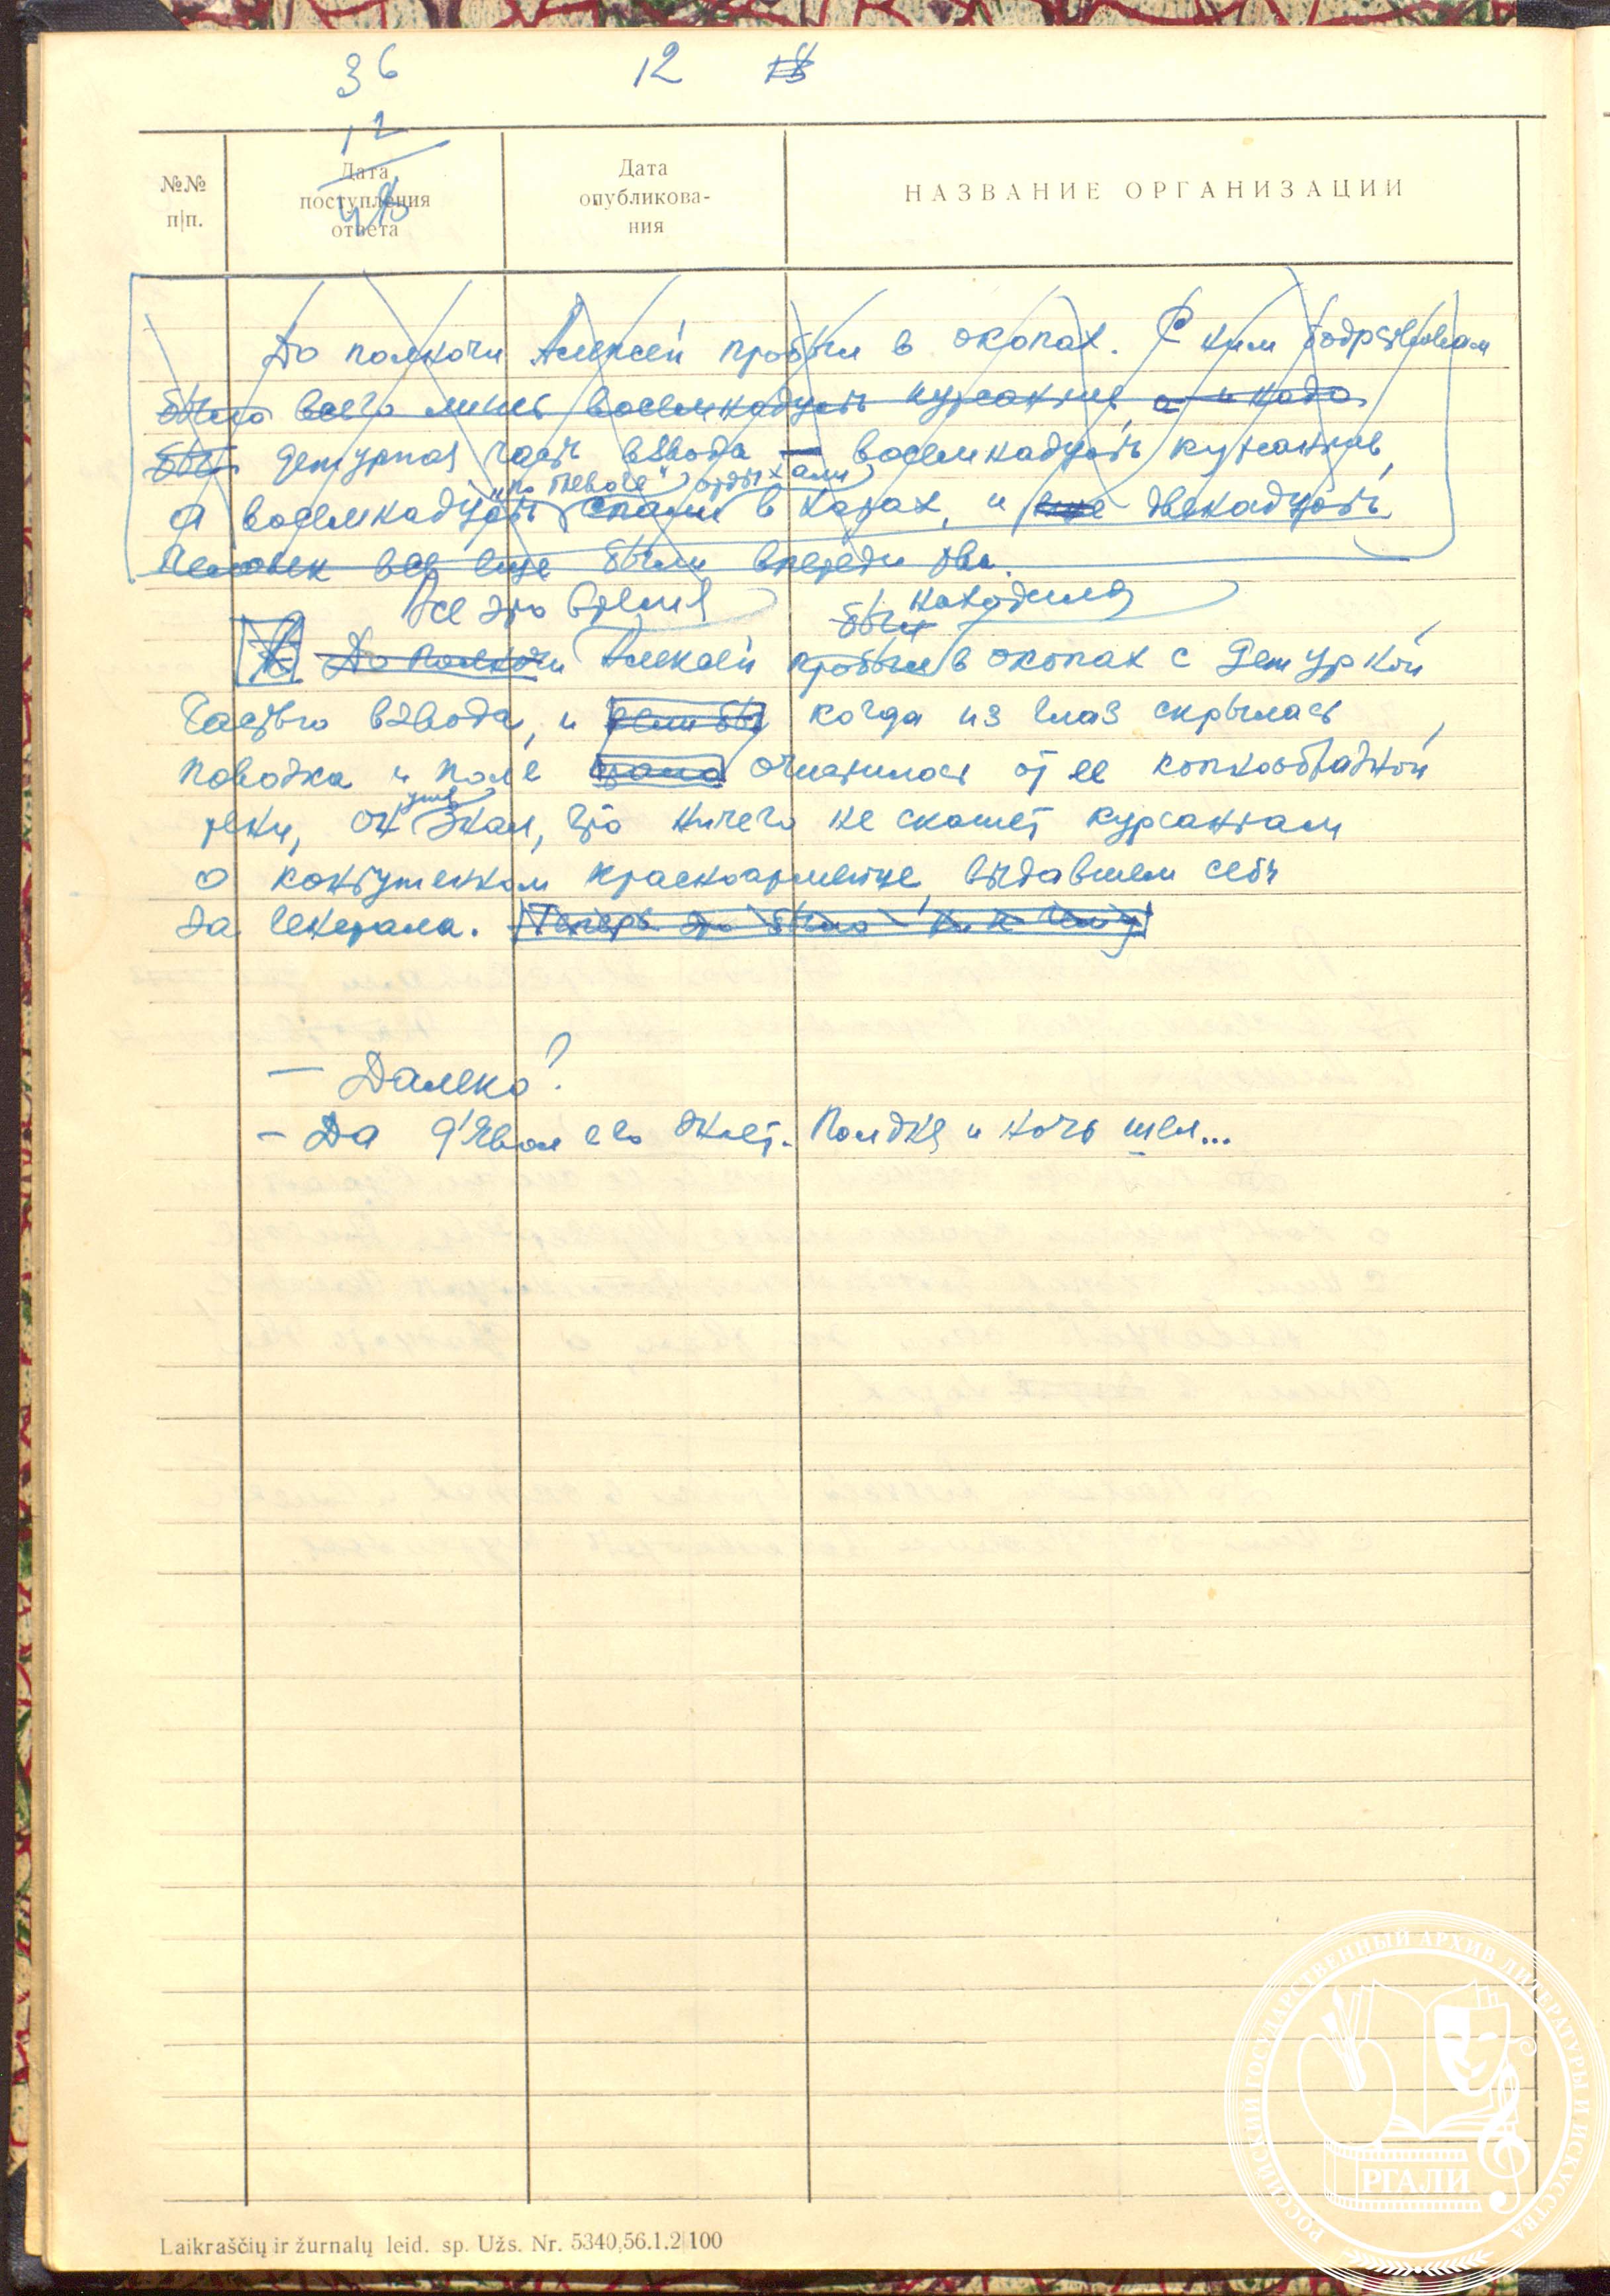 36 12 18
12
48
№№ п/п.
Дата поступления ответа
Дата опубликова-
ния
НАЗВАНИЕ ОРГАНИЗАЦИИ
До полночи Алексей пробыл в окопах. С ним бодрствовала
было всего лишь восемнадцать курсантов, а и надо
был дежурная часть взвода — восемнадцать курсантов,
"по тревоге" отдыхали
а восемнадцать спали в хатах, и еще двенадцать
человек все еще были впереди рва.
Все это время был находился
До полночи Алексей пробыл в окопах с дежурной
частью взвода, и если бы когда из глаз скрылась
повозка и поле очистилось от ее копнообразной
уже
тени, он знал, что ничего не скажет курсантам
о контуженном красноармейце, выдавшем себя
за генерала. Теперь это было ни к чему
— Далеко?
— Да дьявол его знает. Полдня и ночь шел...
Laikraščių ir žurnalų leid. sp. Užs. Nr. 5340,56.1.2|100
РОССИЙСКИЙ ГОСУДАРСТВЕННЫЙ АРХИВ ЛИТЕРАТУРЫ И ИСКУССТВА
РГАЛИ